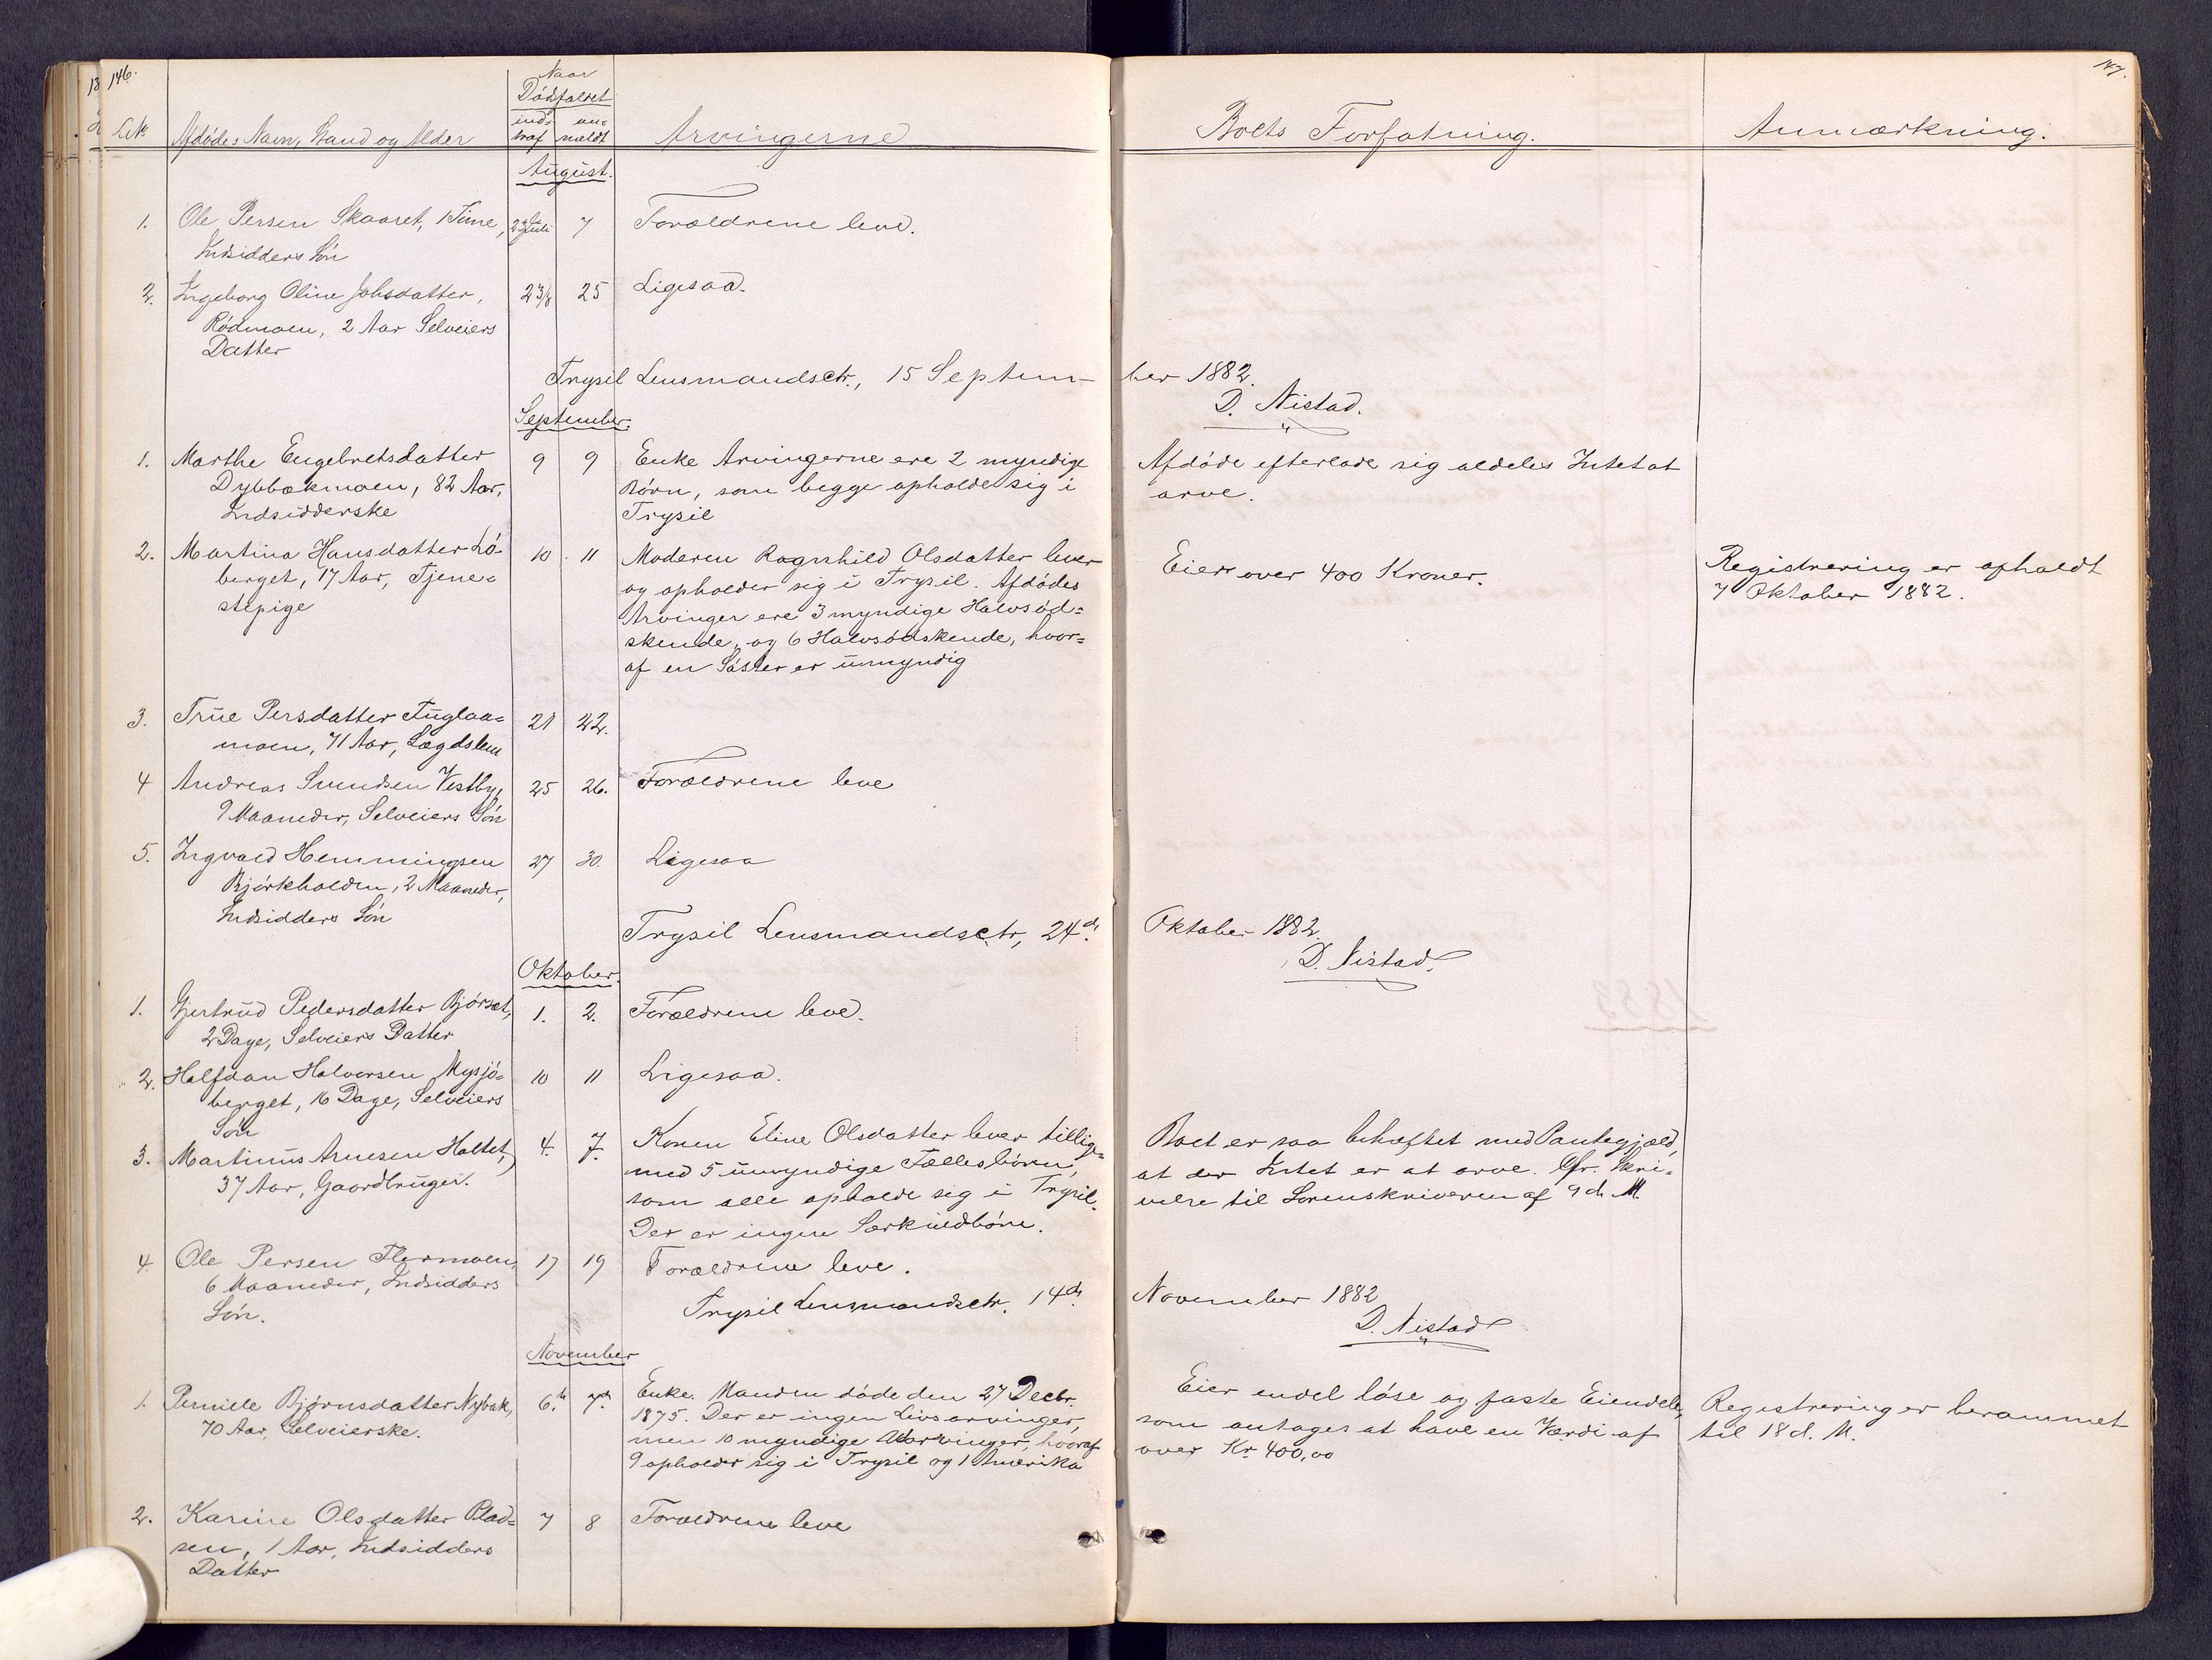 146.
147.
Naar
Dødsfaldet
ind-
traf
an-
meldt
No
Afdødes Navn, Stand og Alder
Arvingerne
Boets Forfatning.
Anmærkning.
August.
1. Ole Persen Skaaret, 1 Time, 23 Juli 7 Forældrene leve.
Indsidders Søn
2. Ingeborg Oline Johsdatter, 23/8 25 Ligesaa.
Rødmoen, 2 Aar Selveiers
Datter
Trysil Lensmandsctr., 15 Septem- ber 1882.
D. Nistad.
September.
1. Marthe Engebretsdatter 9 9 Enke Arvingerne ere 2 myndige Afdøde efterlade sig aldeles Intet at
Dybbækmoen, 82 Aar, Børn, som begge opholde sig i arve.
Indsidderske Trysil
2. Martina Hansdatter Lø- 10 11 Moderen Ragnhild Olsdatter lever Eier over 400 Kroner. Registrering er afholdt
berget, 17 Aar, Tjene- og opholder sig i Trysil. Afdødes 7 Oktober 1882.
stepige Arvinger ere 3 myndige Halvsød-
skende, og 6 Halvsødskende, hvor-
af en Søster er umyndig
3. True Persdatter Fuglaa- 21 22.
moen, 71 Aar, Lægdslem
4 Andreas Svendsen Vestby, 25 26. Forældrene leve
9 Maaneder, Selveiers Søn
5. Ingvald Hemmingsen 27 30. Ligesaa
Bjørkholden, 2 Maaneder,
Indsidders Søn
Trysil Lensmandsctr, 24d. Oktober 1882.
D. Nistad.
Oktober.
1. Gjertrud Pedersdatter Bjørset, 1. 2. Forældrene leve.
2 Dage, Selveiers Datter
2. Halfdan Halvorsen Mysjø- 10 11 Ligesaa.
berget, 16 Dage, Selveiers
Søn
3. Martinus Arnesen Holtet, 4. 7. Konen Eline Olsdatter lever tillige- Boet er saa behæftet med Pantegjæld,
37 Aar, Gaardbruger. med 5 umyndige Fællesbørn, at der Intet er at arve. Cfr. Skri-
som alle opholde sig i Trysil. velse til Sorenskriveren af 9 d. M.
Der er ingen Særkuldbørn.
4. Ole Persen Flermoen, 17 19 Forældrene leve.
6 Maaneder, Indsidders
Søn.
Trysil Lensmandsctr. 14d. November 1882
D. Nistad
November
1. Pernille Bjørnsdatter Nybak, 6. 7. Enke. Manden døde den 27 Decbr. Eier endel løse og faste Eiendele, Registrering er berammet
70 Aar, Selveierske. 1875. Der er ingen Livsarvinger, som antages at have en Værdi af til 18 d. M.
men 10 myndige Arvinger, hvoraf over Kr. 400,00
9 opholder sig i Trysil og 1 Amerika
2. Karine Olsdatter Plad- 7 8 Forældrene leve
sen, 1 Aar, Indsidders
Datter